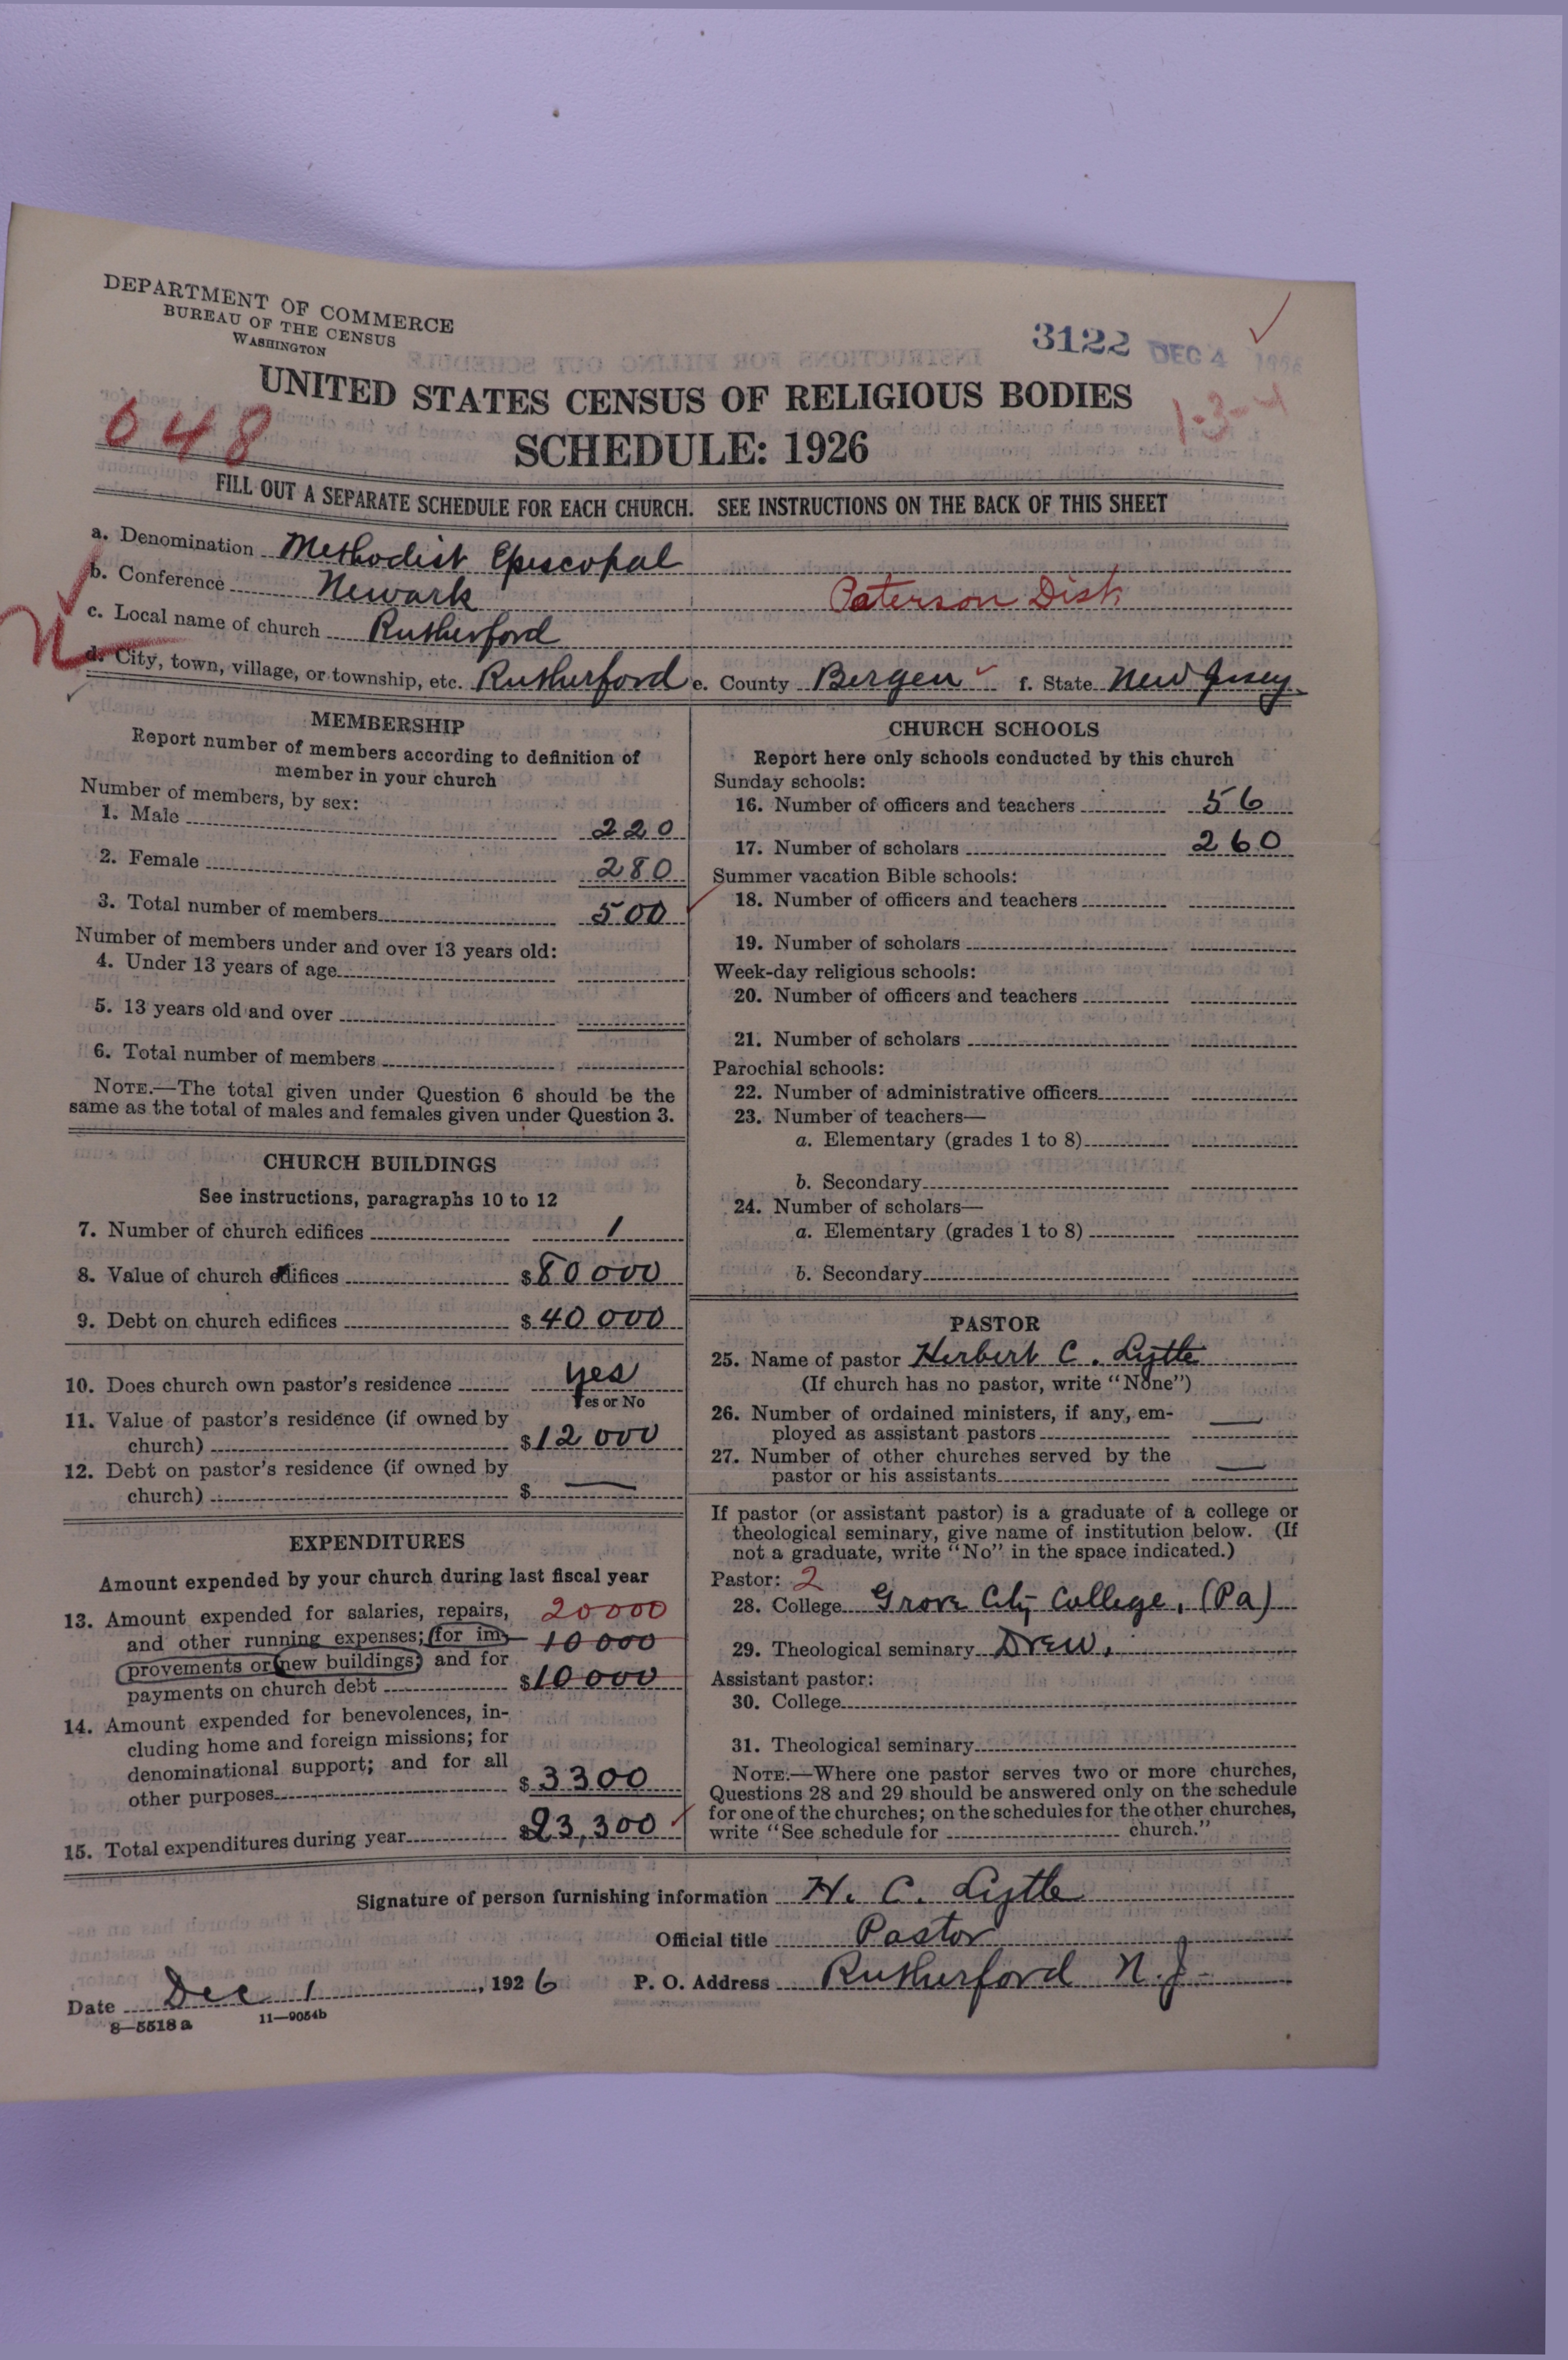 DEPARTMENT OF COMMERCE
BUREAU OF THE CENSUS
WASHINGTON
3122 DEC 4 1926
UNITED STATES CENSUS OF RELIGIOUS BODIES
048
1-3-4
SCHEDULE: 1926
FILL OUT A SEPARATE SCHEDULE FOR EACH CHURCH. SEE INSTRUCTIONS ON THE BACK OF THIS SHEET
a. Denomination Methodist Episcopal
b. Conference Newark Paterson Dist.
c. Local name of church Rutherford
N
d. City, town, village, or township, etc. Rutherford e. County Bergen f. State New Jersey
MEMBERSHIP
Report number of members according to definition of
member in your church
Number of members, by sex:
1. Male 220
2. Female 280
3. Total number of members 500
Number of members under and over 13 years old:
4. Under 13 years of age
5. 13 years old and over
6. Total number of members
NOTE.—The total given under Question 6 should be the
same as the total of males and females given under Question 3.
CHURCH BUILDINGS
See instructions, paragraphs 10 to 12
7. Number of church edifices 1
8. Value of church edifices $80 000
9. Debt on church edifices $40 000
10. Does church own pastor's residence yes
Yes or No
11. Value of pastor's residence (if owned by
church) $12 000
12. Debt on pastor's residence (if owned by
church) $ —
EXPENDITURES
Amount expended by your church during last fiscal year
13. Amount expended for salaries, repairs, 20000
and other running expenses; for im- 10 000
provements or new buildings; and for
payments on church debt $10 000
14. Amount expended for benevolences, in-
cluding home and foreign missions; for
denominational support; and for all
other purposes $3300
15. Total expenditures during year $23,300
CHURCH SCHOOLS
Report here only schools conducted by this church
Sunday schools:
16. Number of officers and teachers 56
17. Number of scholars 260
Summer vacation Bible schools:
18. Number of officers and teachers
19. Number of scholars
Week-day religious schools:
20. Number of officers and teachers
21. Number of scholars
Parochial schools:
22. Number of administrative officers
23. Number of teachers—
a. Elementary (grades 1 to 8)
b. Secondary
24. Number of scholars—
a. Elementary (grades 1 to 8)
b. Secondary
PASTOR
25. Name of pastor Herbert C. Lytle
(If church has no pastor, write "None")
26. Number of ordained ministers, if any, em-
ployed as assistant pastors —
27. Number of other churches served by the
pastor or his assistants —
If pastor (or assistant pastor) is a graduate of a college or
theological seminary, give name of institution below. (If
not a graduate, write "No" in the space indicated.)
Pastor: 2
28. College Grove City College, (Pa)
29. Theological seminary Drew.
Assistant pastor:
30. College
31. Theological seminary
NOTE.—Where one pastor serves two or more churches,
Questions 28 and 29 should be answered only on the schedule
for one of the churches; on the schedules for the other churches,
write "See schedule for church."
Signature of person furnishing information H. C. Lytle
Official title Pastor
Date Dec 1, 1926 P. O. Address Rutherford N.J.
8—5518 a 11—9054b